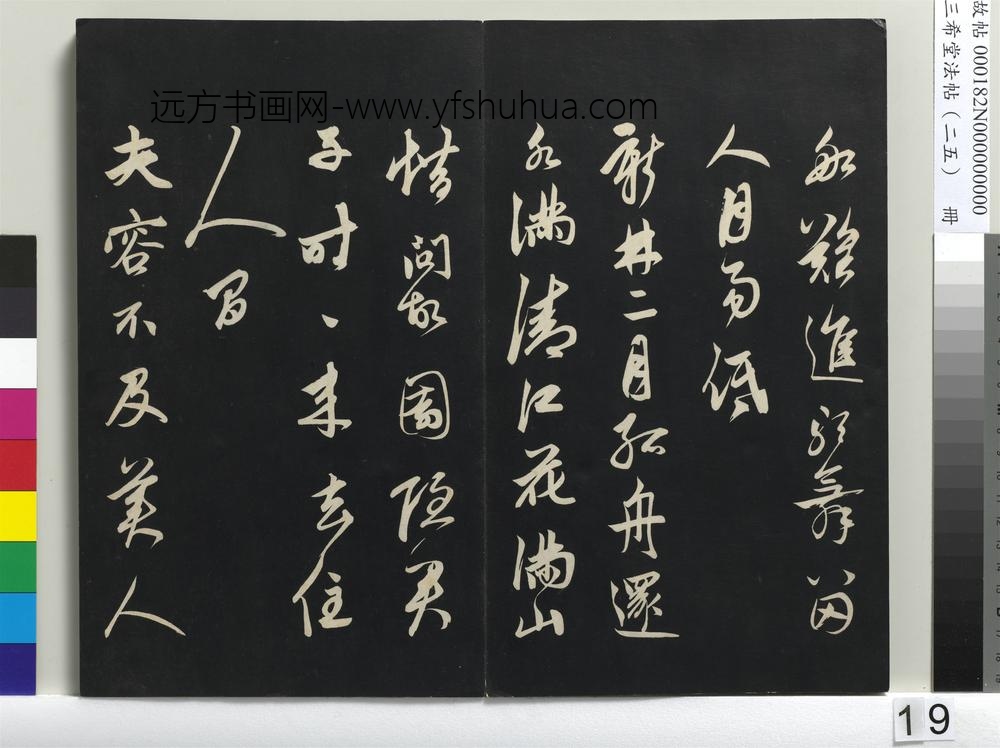 船難進歌舞留
人月易低
新林二月孤舟還
水滿清江花滿山
惜問故園隱君
子时、来去住
人間
夫容不及美人
远方书画网-www.yfshuhua.com
故帖 000182N000000000
三希堂法帖(二五) 冊
19